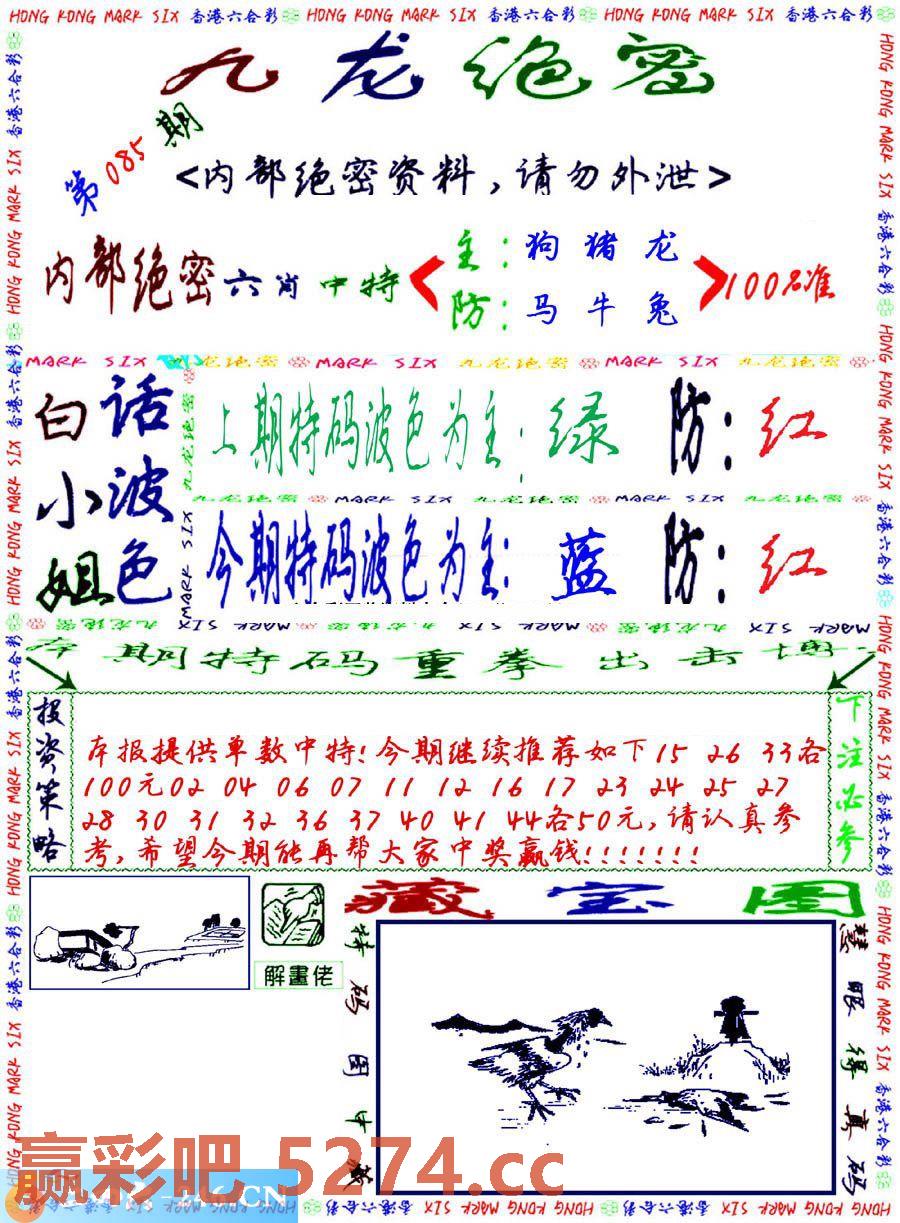 HONG KONG MARK SIX 香港六合彩 HONG KONG MARK SIX 香港六合彩 HONG KONG MARK SIX 香港六合彩
九龙绝密
第085期
<内部绝密资料,请勿外泄>
内部绝密六肖中特
主:狗猪龙
防:马牛兔
100%准
MARK SIX 九龙绝密 MARK SIX 九龙绝密 MARK SIX 九龙绝密
白小姐
话波色
上期特码波色为主:绿 防:红
九龙绝密 MARK SIX 九龙绝密 MARK SIX 九龙绝密
今期特码波色为主: 蓝 防:红
MARK SIX 九龙绝密 MARK SIX 九龙绝密 MARK SIX
本期特码重拳出击博
投资策略
本报提供单数中特!今期继续推荐如下15 26 33各
100元02 04 06 07 11 12 16 17 23 24 25 27
28 30 31 32 36 37 40 41 44各50元,请认真参
考,希望今期能再帮大家中奖赢钱!!!!!!!
下注必参
藏宝图
解畫佬
特码图中藏
慧眼得真码
赢彩吧 5274.cc